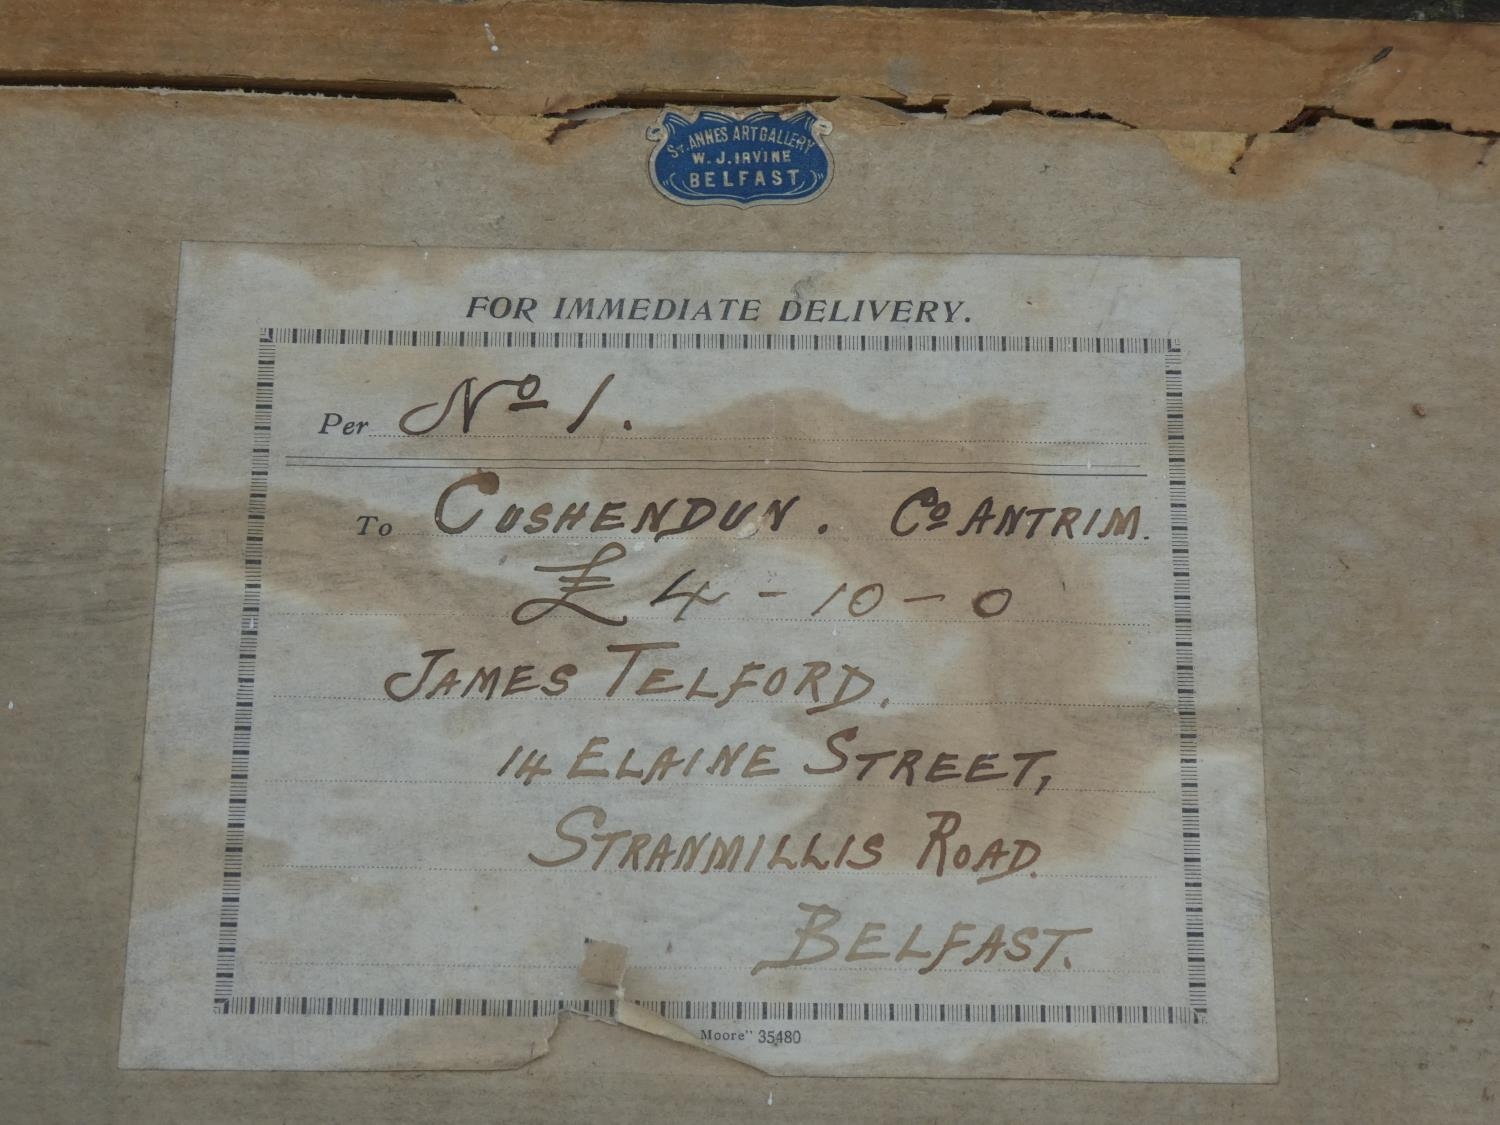 St. ANNES ART GALLERY
W. J. IRVINE
BELFAST
FOR IMMEDIATE DELIVERY.
Per Nº 1.
To CUSHENDUN. Cº ANTRIM.
£4-10-0
JAMES TELFORD.
14 ELAINE STREET,
STRANMILLIS ROAD.
BELFAST.
Moore" 35480